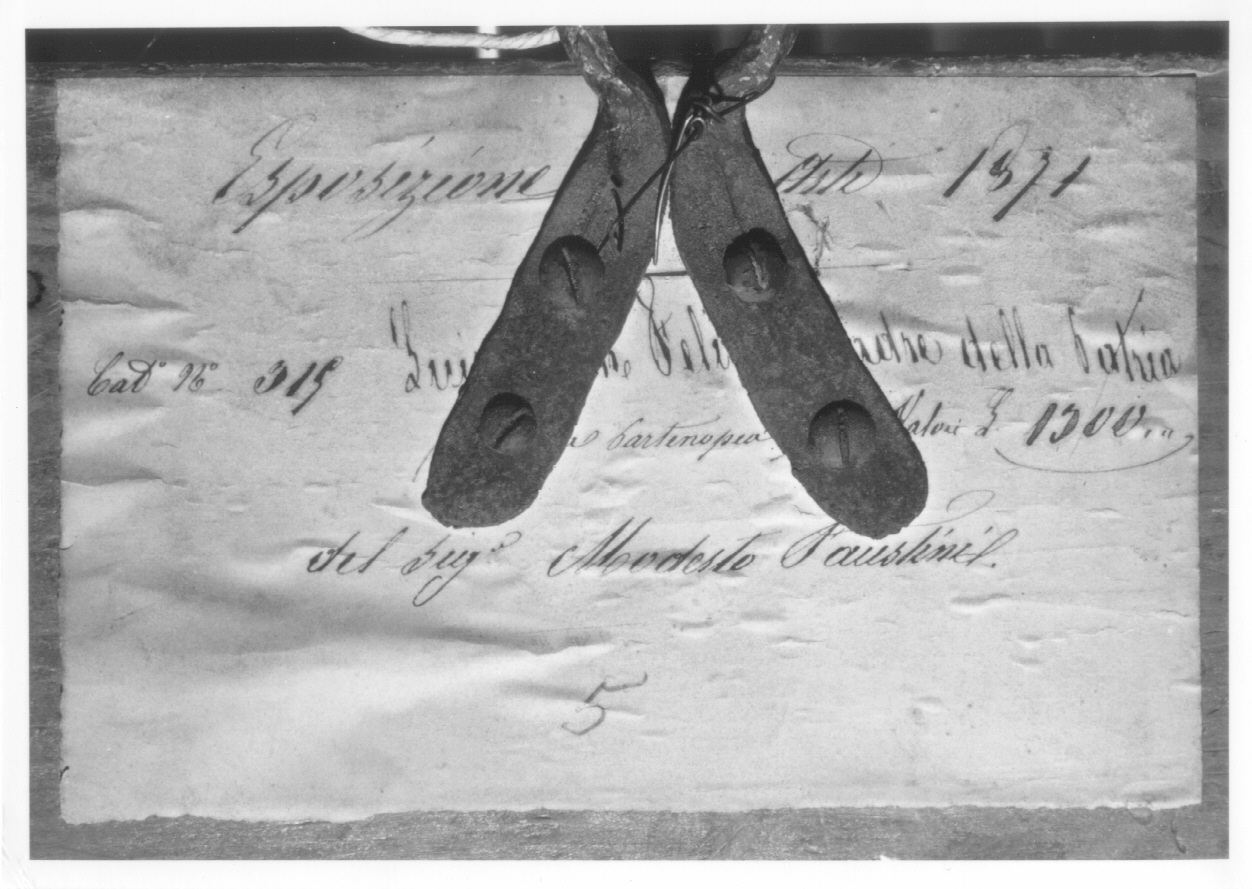 Esposizione Arti 1871
Cat° N° 315 Lui Feli adre della Patria
Partenopea Valore L. 1300
del Sigr Modesto Faustini
5